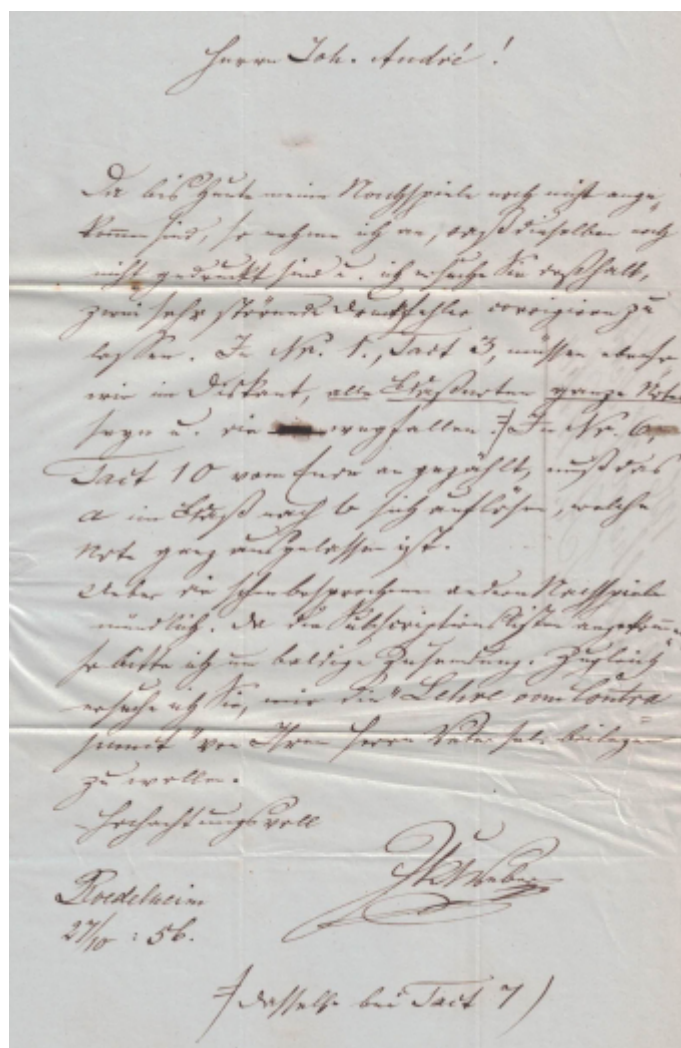 Herrn Joh. André!
Da bis heute meine Nachspiele noch nicht ange„
kommen sind, so nehme ich an, daß dieselben noch
nicht gedruckt sind u. ich ersuche Sie deßhalb,
zwei sehr störende Druckfehler corrigiren zu
lassen. In Nr. 1., Tact 3, müssen ebenso
wie im Diskant, alle Baßnoten ganze Noten
seyn u. die wegfallen. ≠) In Nr. 6,
Tact 10 vom Ende an gezählt, muß das
a im Baß nach b sich auflösen, welche
Note ganz ausgelassen ist.
Ueber die schon besprochenen andern Nachspiele
mündlich. Da die Subscriptionslisten
so bitte ich um baldige Zusendung. Zugleich
ersuche ich Sie, mir die "Lehre vom Contra=
punct" von Ihrem Herrn Vater sel. beilegen
zu wollen.
Hochachtungsvoll
Roedelheim
27/10 : 56.
≠ dasselbe bei Tact 7)